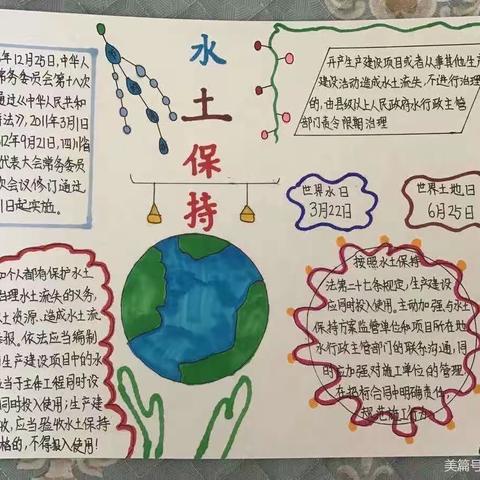 年12月25日,中华人
常务委员会第十八次
通过《中华人民共和
持法》,2011年3月1日
012年9月21日,四川省
代表大会常务委员
次会议修订通过
1日起实施。
水
土
保
持
开产生产建设项目或者从事其他生产
建设活动造成水土流失,不进行治理
的,由县级以上人民政府水行政主管
部门责令限期治理
世界水日
3月22日
世界土地日
6月25日
和个人都有保护水土
治理水土流失的义务,
土资源、造成水土流
举报。依法应当编制
的生产建设项目中的水
应当于主体工程同时设
同时投入使用;生产建
收,应当验收水土保持
格的,不得投入使用!
按照水土保持
法第二十七条规定,生产建设
应同时投入使用。主动加强与水土
保持方案监管单位和项目所在地
水行政主管部门的联系沟通,同
时应加强对施工单位的管理
在招标合同中明确责任,
规范施工行为
美篇号